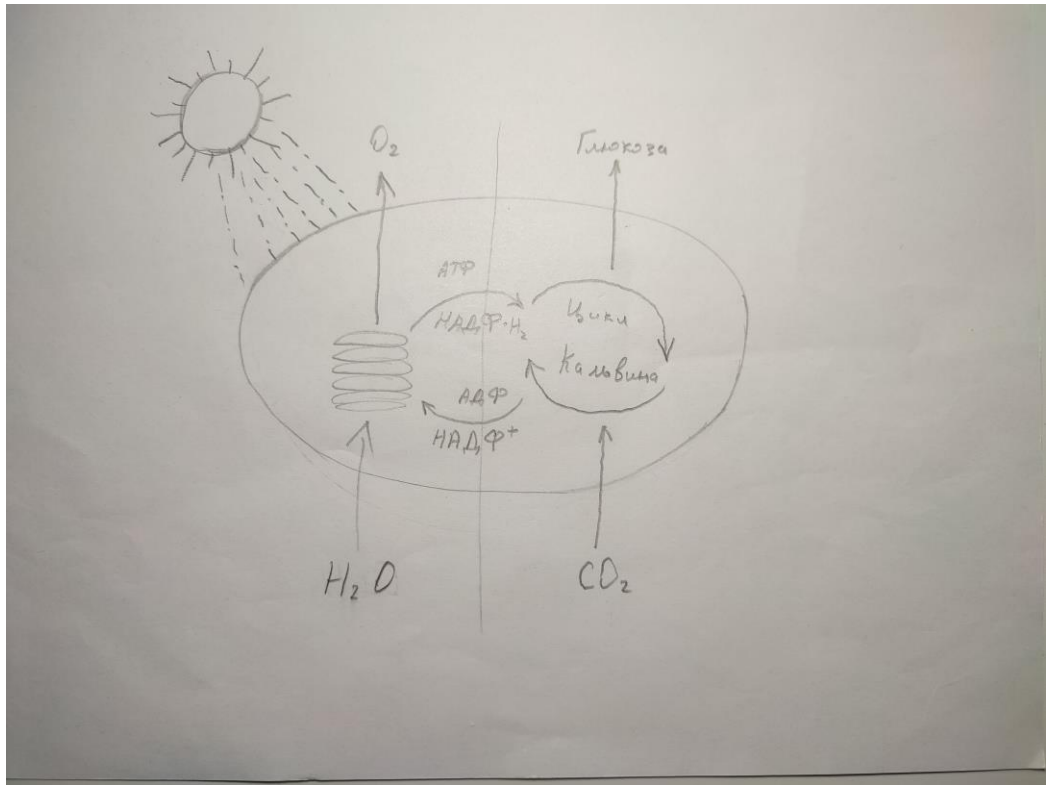 O₂
Глюкоза
АТФ
НАДФ·H₂
Цикл
Кальвина
АДФ
НАДФ⁺
H₂O
CO₂